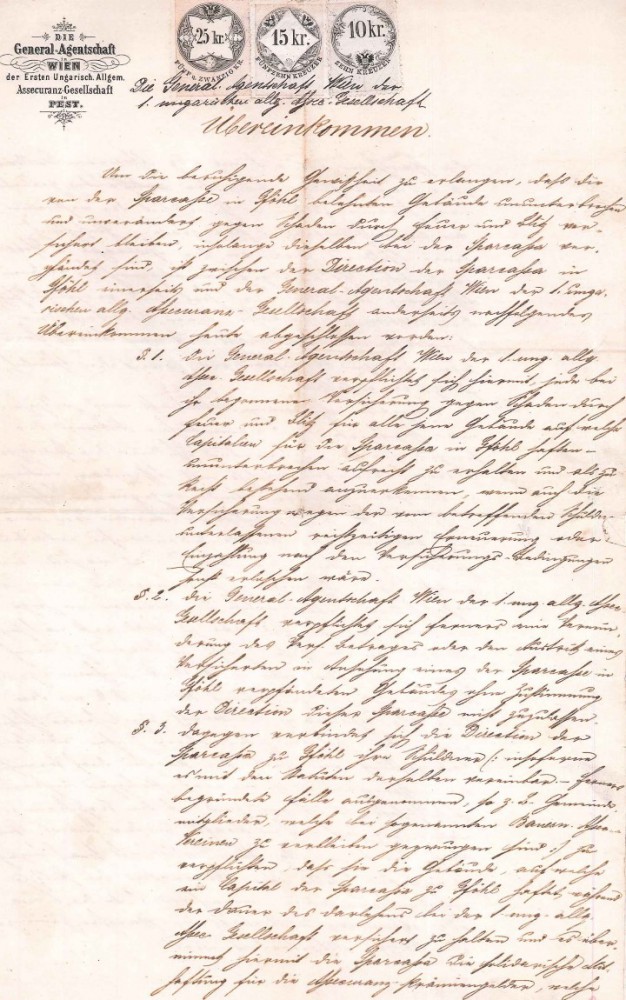 DIE
General-Agentschaft
in
WIEN
der Ersten Ungarisch. Allgem.
Assecuranz-Gesellschaft
in
PEST.
25 kr.
FÜNF u. ZWANZIG KR.
15 kr.
FÜNFZEHN KREUZER
10 kr.
ZEHN KREUZER
Die General-Agentschaft Wien der
1. ungarischen allg. Asse-Gesellschaft
Übereinkommen.
Um die beruhigende Gewißheit zu erlangen, daß die
von der Sparcasse in Gföhl belehnten Gebäude ununterbrochen
und unverändert gegen Schaden durch Feuer und Blitz ver-
sichert bleiben, insolange dieselben bei der Sparcassa ver-
pfändet sind, ist zwischen der Direction der Sparcassa in
Gföhl einerseits und der General-Agentschaft Wien der 1. unga-
rischen allg. Assecuranz-Gesellschaft anderseits nachfolgendes
Übereinkommen heute abgeschlossen worden:
§. 1. Die General-Agentschaft Wien der 1. ung. allg.
Assec. Gesellschaft verpflichtet sich hiermit, jede bei
ihr begonnene Versicherung gegen Schaden durch
Feuer und Blitz für alle jene Gebäude auf welche
Capitalien für die Sparcassa in Gföhl haften
ununterbrochen aufrecht zu erhalten und als zu
Recht bestehend anzuerkennen, wenn auch die
Versicherung wegen der vom betreffenden Schuldner
unterlassenen rechtzeitigen Erneuerung oder
Einzahlung nach den Versicherungs-Bedingungen
sonst erloschen wäre.
§. 2. Die General-Agentschaft Wien der 1. ung. allg. Assec.
Gesellschaft verpflichtet sich ferners eine Vermin-
derung des Vers. betrages oder den Austritt eines
Versicherten in Ansehung eines der Sparcasse in
Gföhl verpfändeten Gebäudes ohne Zustimmung
der Direction dieser Sparcasse nicht zuzulassen.
§. 3. Dagegen verbindet sich die Direction der
Sparcassa zu Gföhl ihre Schuldner /: insoferne
es mit den Statuten derselben vereinbar – ferners
begründete Fälle ausgenommen, so z. B. Gemeinde-
mitglieder, welche bei sogenannten Bauern-Assec.
Vereinen zu verbleiben gezwungen sind :/ zu
verpflichten, dass sie die Gebäude, auf welche
ein Capital der Sparcassa zu Gföhl haftet, während
der Dauer des Darlehens bei der 1. ung. allg.
Assec. Gesellschaft versichert zu halten und es über-
nimmt hiermit die Sparcassa die solidarische
haftung für die Assecuranz-Prämiengelder, welche